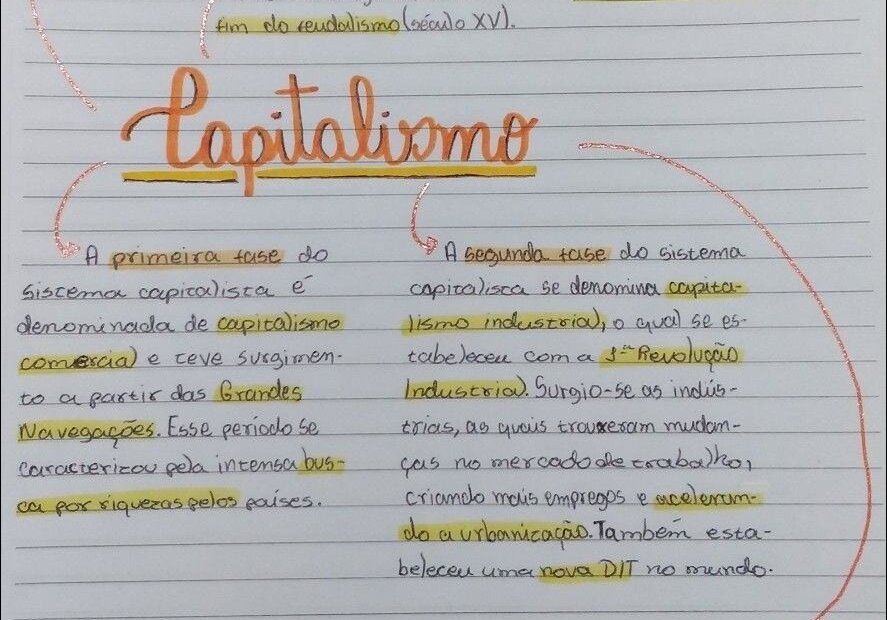 fim do feudalismo (século XV).
Capitalismo
A primeira fase do
sistema capitalista é
denominada de capitalismo
comercial e teve surgimen-
to a partir das Grandes
Navegações. Esse período se
caracterizou pela intensa bus-
ca por riquezas pelos países.
A segunda fase do sistema
capitalista se denomina capita-
lismo industrial, o qual se es-
tabeleceu com a 1ª Revolução
Industrial. Surgio-se as indús-
trias, as quais trouxeram mudan-
ças no mercado de trabalho,
criando mais empregos e aceleran-
do a urbanização. Também esta-
beleceu uma nova DIT no mundo.